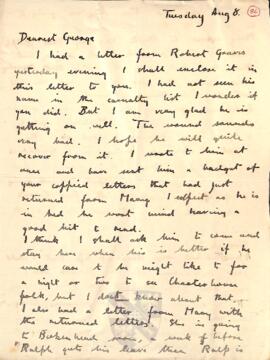 Tuesday Aug 8.
86
Dearest George
I had a letter from Robert Graves
yesterday evening I shall enclose it in
this letter to you. I had not seen his
name in the casualty list I wonder if
you did. But I am very glad he is
getting on well. The wound sounds
very bad. I hope he will quite
recover from it. I wrote to him at
once and have sent him a budget of
your coppied letters that had just
returned from Maany I expect as he is
in bed he wont mind having a
good bit to read.
I think I shall ask him to come and
stay here when he is better if he
would care to he might like to for
a night or two to see Charterhouse
folk, but I dont know about that.
I also had a letter from Maany with
the returned letters. She is going
to Birkenhead now, week before
Ralph gets his leave then Ralph is